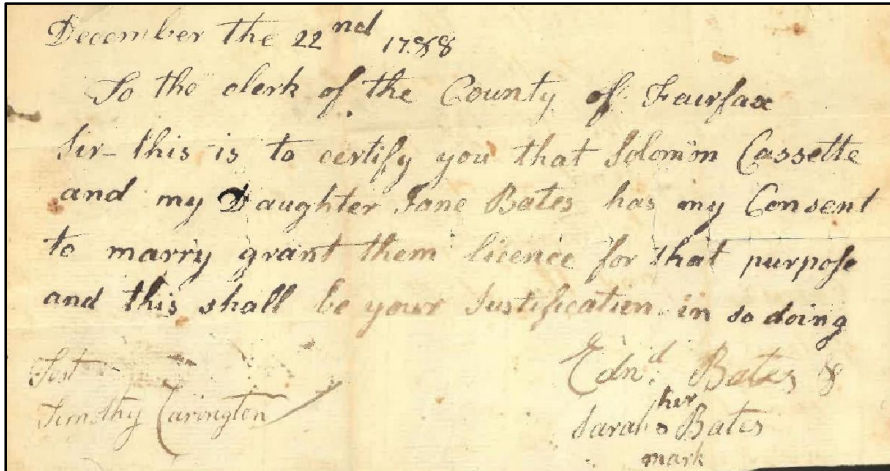 December the 22nd 1788
To the clerk of the County of Fairfax
Sir- this is to certify you that Solomon Cassette
and my Daughter Jane Bates has my Consent
to marry grant them licence for that purpose
and this shall be your Justification in so doing
Test
Timothy Carington
Ednd. Bates &
her
Sarah Bates
mark